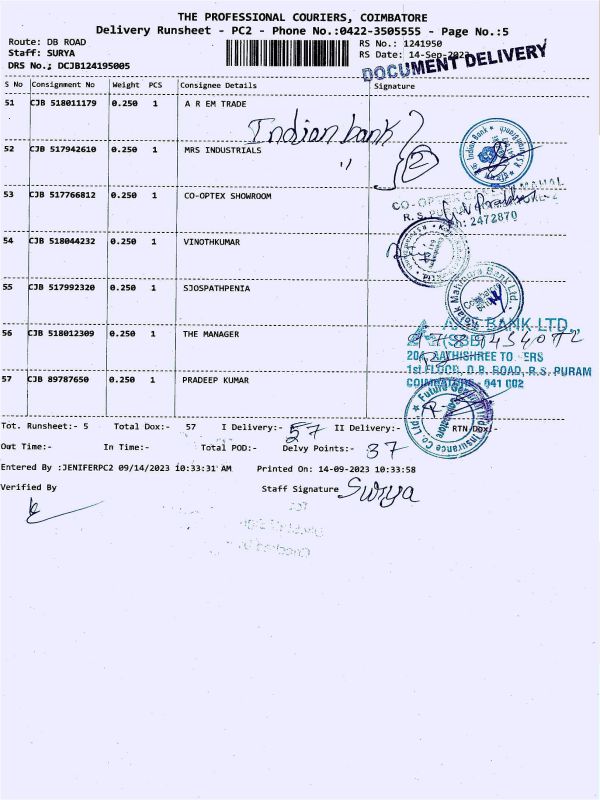 THE PROFESSIONAL COURIERS, COIMBATORE
Delivery Runsheet - PC2 - Phone No.:0422-3505555 - Page No.:5
Route: DB ROAD RS No.: 1241950
Staff: SURYA RS Date: 14-Sep-2023
DRS No.; DCJB124195005 DOCUMENT DELIVERY
S No Consignment No Weight PCS Consignee Details Signature
51 CJB 518011179 0.250 1 A R EM TRADE
Indian bank
52 CJB 517942610 0.250 1 MRS INDUSTRIALS
" 2
53 CJB 517766812 0.250 1 CO-OPTEX SHOWROOM
2472870
54 CJB 518044232 0.250 1 VINOTHKUMAR
55 CJB 517992320 0.250 1 SJOSPATHPENIA
Kotak Mahindra Bank Ltd.
Coimbatore
AXIS BANK LTD.,
56 CJB 518012309 0.250 1 THE MANAGER
1st FLOOR, D.B. ROAD, R.S. PURAM
57 CJB 89787650 0.250 1 PRADEEP KUMAR
COIMBATORE - 641 002
Future Generali India Insurance Co. Ltd
Coimbatore
Tot. Runsheet:- 5 Total Dox:- 57 I Delivery:- 57 II Delivery:- RTN Dox:-
Out Time:- In Time:- Total POD:- Delvy Points:- 37
Entered By :JENIFERPC2 09/14/2023 10:33:31 AM Printed On: 14-09-2023 10:33:58
Verified By Staff Signature Surya